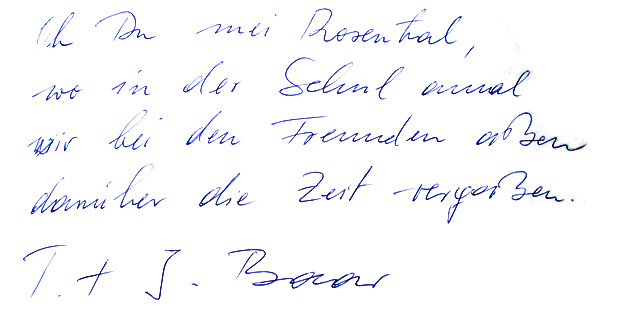 Oh Du mei Rosenthal,
wo in der Schul amal
wir bei den Freunden aßen
darüber die Zeit vergaßen.
T. + J. Baar